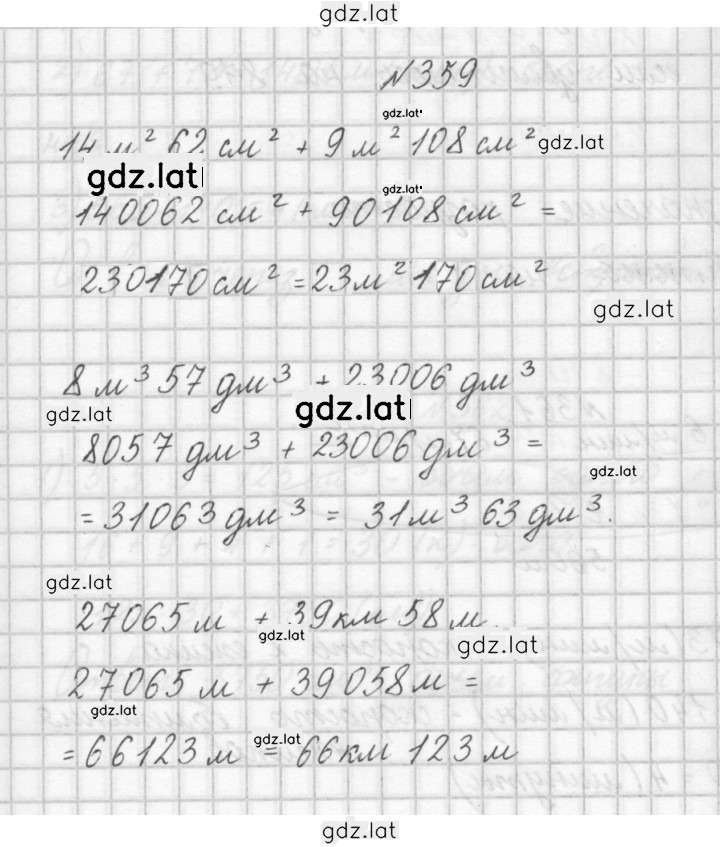 gdz.lat
№359
gdz.lat
14 м² 62 см² + 9 м² 108 см² gdz.lat
gdz.lat gdz.lat
140062 см² + 90108 см² =
230170 см² = 23 м² 170 см²
gdz.lat
8 м³ 57 дм³ + 23006 дм³
gdz.lat gdz.lat
8057 дм³ + 23006 дм³ =
gdz.lat
= 31063 дм³ = 31 м³ 63 дм³.
gdz.lat
27065 м + 39 км 58 м
gdz.lat gdz.lat
27065 м + 39058 м =
gdz.lat gdz.lat
= 66123 м = 66 км 123 м
gdz.lat